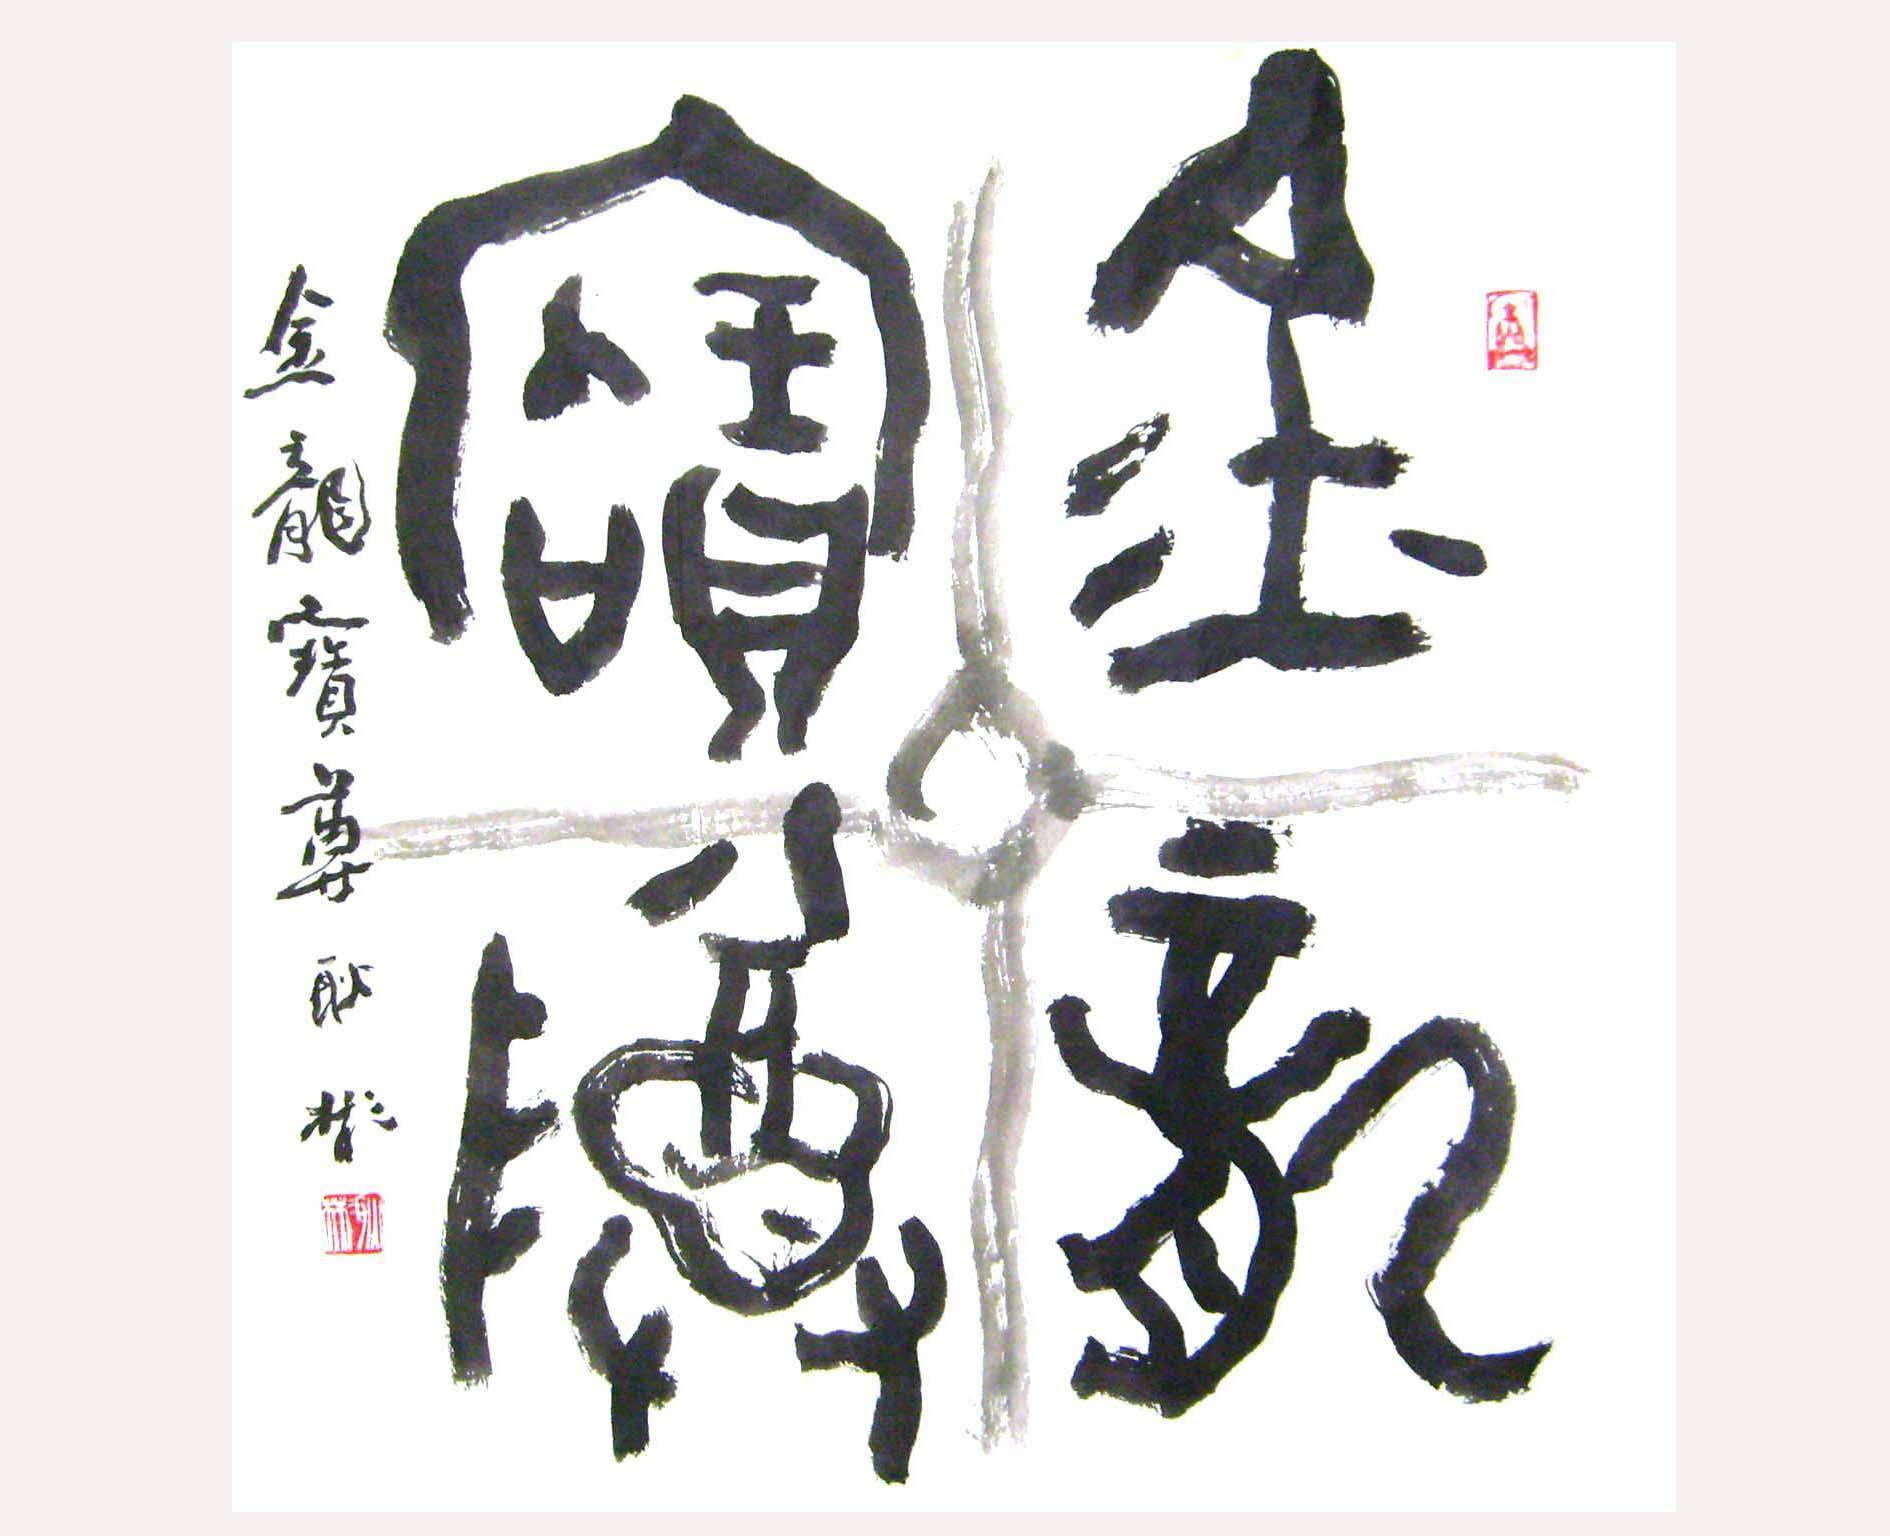 金龍
寶尊
金龍寶尊 耿彬